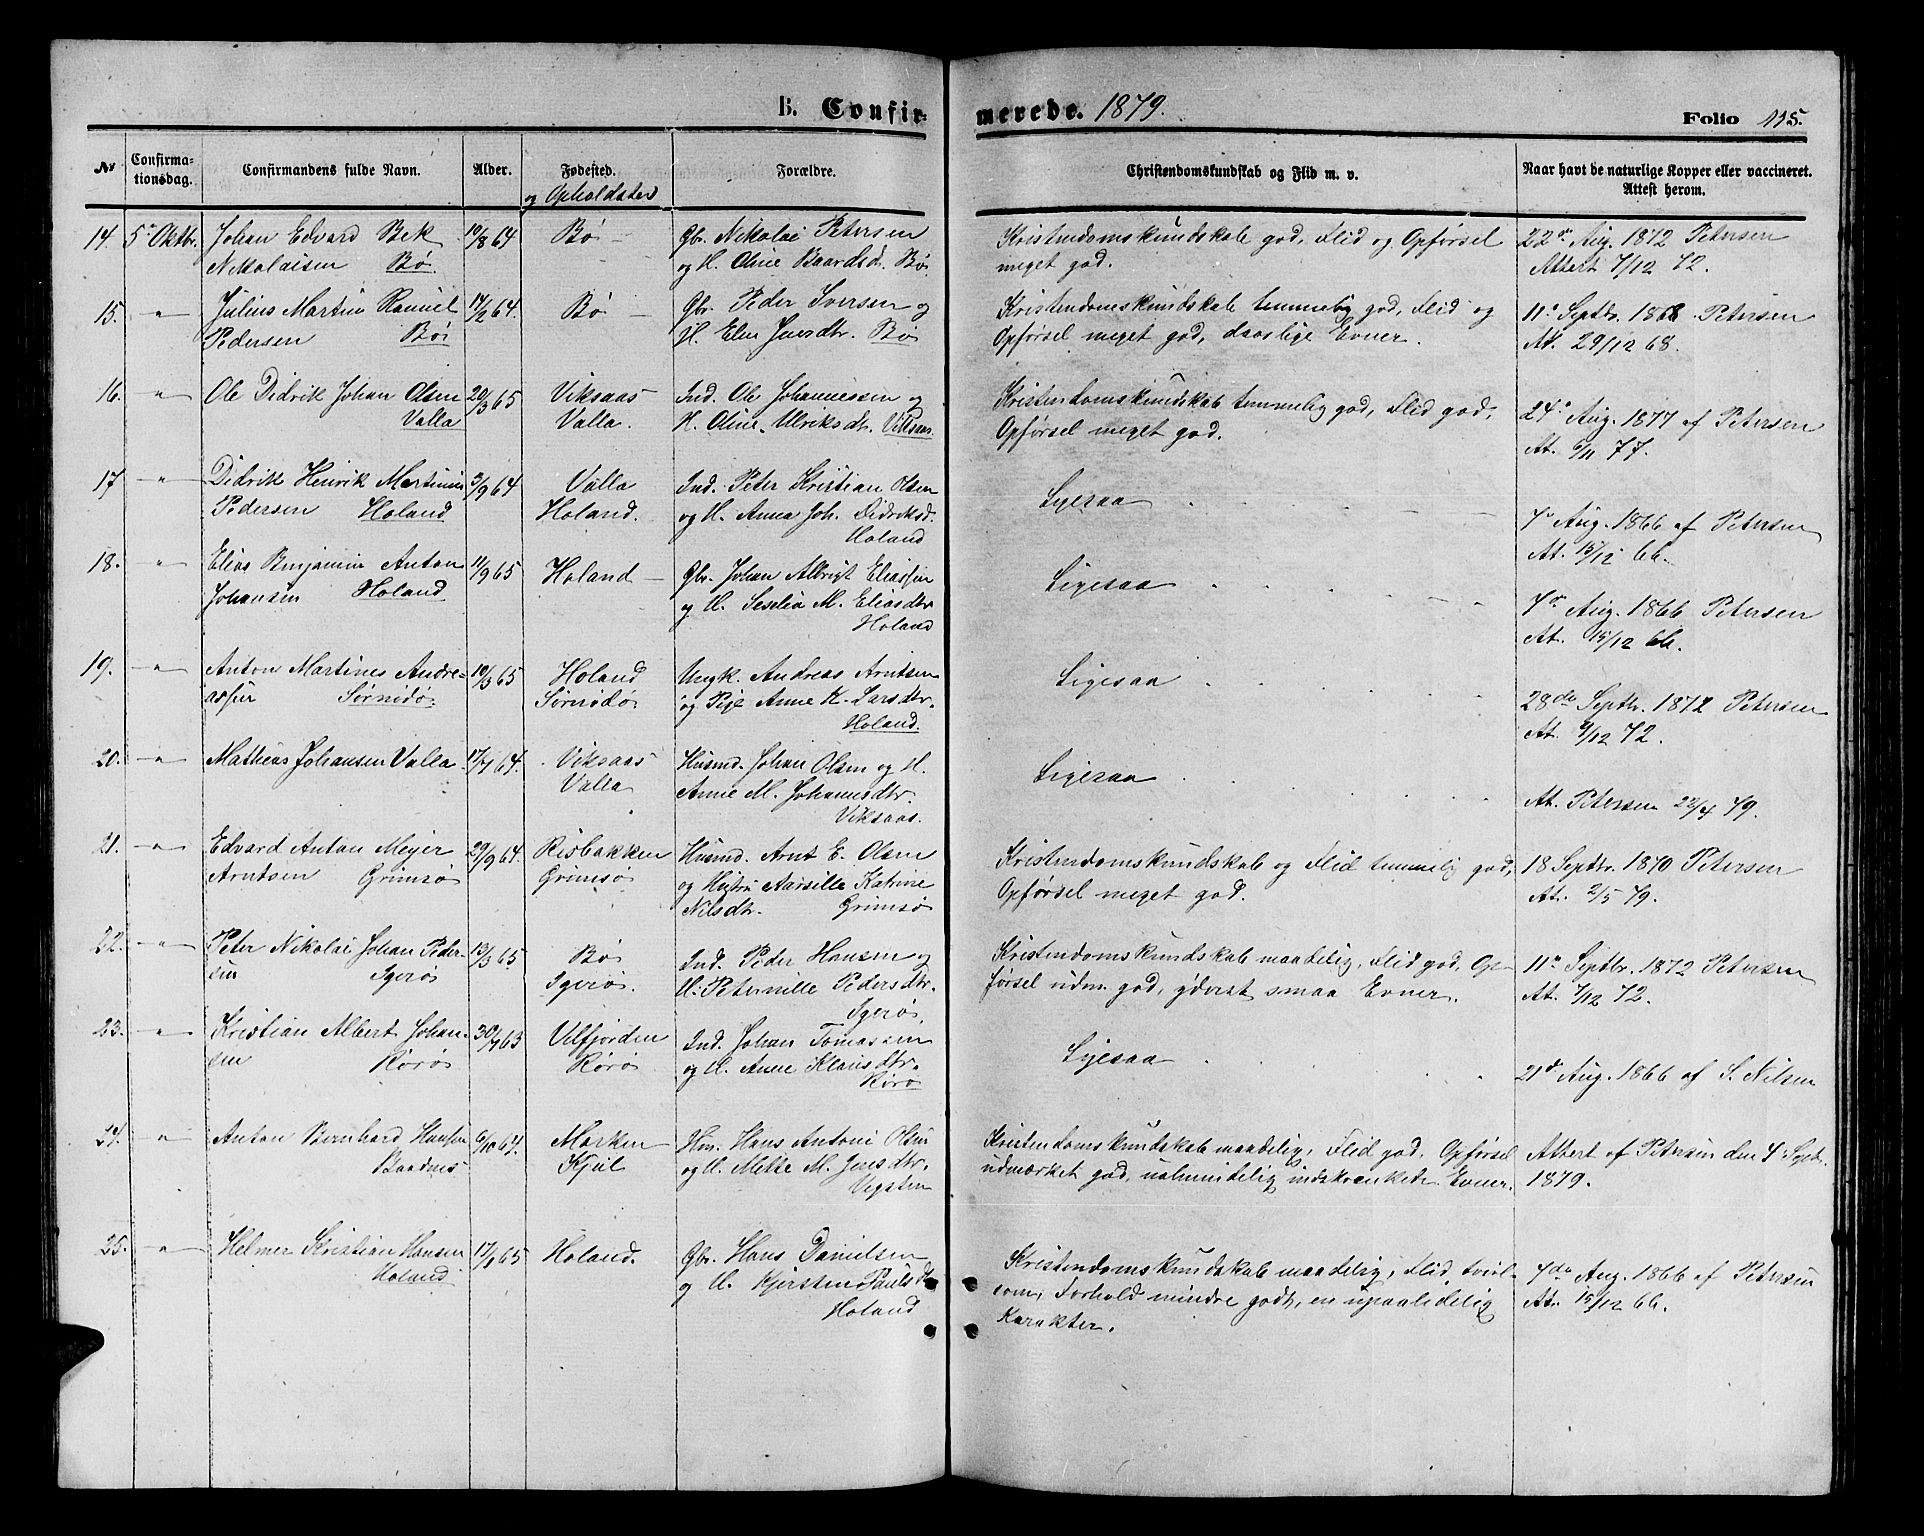 B. Confirmerede. 1879. Folio 115.
No Confirmationsdag. Confirmandens fulde Navn. Alder. Fødested. og Opholdssted Forældre. Christendomskundskab og Flid m. v. Naar havt de naturlige Kopper eller vaccineret. Attest herom.
14. 5 Oktbr. Johan Edvard Bek 10/8 64 Bø - Gbr. Nikolai Petersen Kristendomskundskab god, Flid og Opførsel 22de Aug. 1872 Petersen
Nikolaisen Bø. og H. Oline Baardsd. Bø meget god. Attest 7/12 72.
15. " Julius Martin 17/2 64. Bø - Gbr. Peder Iversen og Kristendomskundskab temmelig god, Flid og 11te Septbr. 1868 Petersen
Pedersen Bø H. Elen Jensdtr. Bø Opførsel meget god, daarlige Evner. At. 29/12 68.
16. " Ole Didrik Johan Olsen 20/3 65 Viksaas Ind. Ole Johannessen og Kristendomskundskab temmelig god, Flid god, 24de Aug. 1877 af Petersen
Valla Valla. H. Oline Ulriksdtr. Viksaas. Opførsel meget god. At. 6/11 77.
17 " Didrik Henrik Martinus 3/9 64 Valla Ind. Peter Kristian Olsen Ligesaa
Pedersen Holand Holand. og H. Anna Joh. Didriksd. 7de Aug. 1866 af Petersen
Holand At. 15/12 66.
18. " Elias Benjamin Anton 11/9 65 Holand - Gbr. Johan Albrigt Eliassen Ligesaa
Johansen Holand og H. Seselia M. Eliasdtr. 7de Aug. 1866 Petersen
Holand At. 15/12 66.
19. " Anton Martines Andre- 10/3 65 Holand Ungk. Andreas Arntsen Ligesaa
assen Sørnidø. Sørnidø. og Pige Anne K. Larsdtr. 28de Septbr. 1872 Petersen
Holand. At. 7/12 72.
20. " Mathias Johansen Valla 17/7 64. Viksaas Husmd. Johan Olsen og H. Ligesaa
Valla Anne M. Johannesdtr. At. Petersen 22/4 79.
Viksaas.
21. " Edvard Anton Meyer 29/9 64. Risbakken Husmd. Arnt E. Olsen Kristendomskundskab og Flid temmelig god, 18 Septbr. 1870 Petersen
Arntsen Grimsø Grimsø og Hustru Aarsille Katrine Opførsel meget god. At. 2/5 79.
Nilsdtr. Grimsø
22. " Peter Nikolai Johan Peder- 13/3 65 Bø Ind. Peder Hansen og Kristendomskundskab maadelig, Flid god, Op- 11te Septbr. 1872 Petersen
sen Igerøs Igerøs. H. Peternille Pedersdtr. førsel udm. god, yderst smaa Evner. At. 7/12 72.
Igerøs.
23. " Kristian Albert Johan- 30/7 63 Velfjorden Ind. Johan Tomassen Ligesaa
sen Rørøs Rørøs og H. Anne Klausdtr. 21de Aug. 1866 af S. Nilsen
Rørø
24. " Anton Bernhard Hansen 6/10 64. Marken Hm. Hans Antoni Olsen Kristendomskundskab maadelig, Flid god, Opførsel Attest af Petersen den 4 Septbr.
Kjul og H. Mette M. Jensdtr. udmærket god, ualmindelig indskrenkede Evner. 1879.
Vegsten
25. " Helmer Kristian Hansen 17/1 65 Holand. Gbr. Hans Danielsen Kristendomskundskab maadelig, Flid tvivl- 7de Aug. 1866 af Petersen
Holand og H. Kjersten Paulsdtr. som, Forhold mindre godt, en upaalidelig At. 15/12 66.
Holand Karakter.